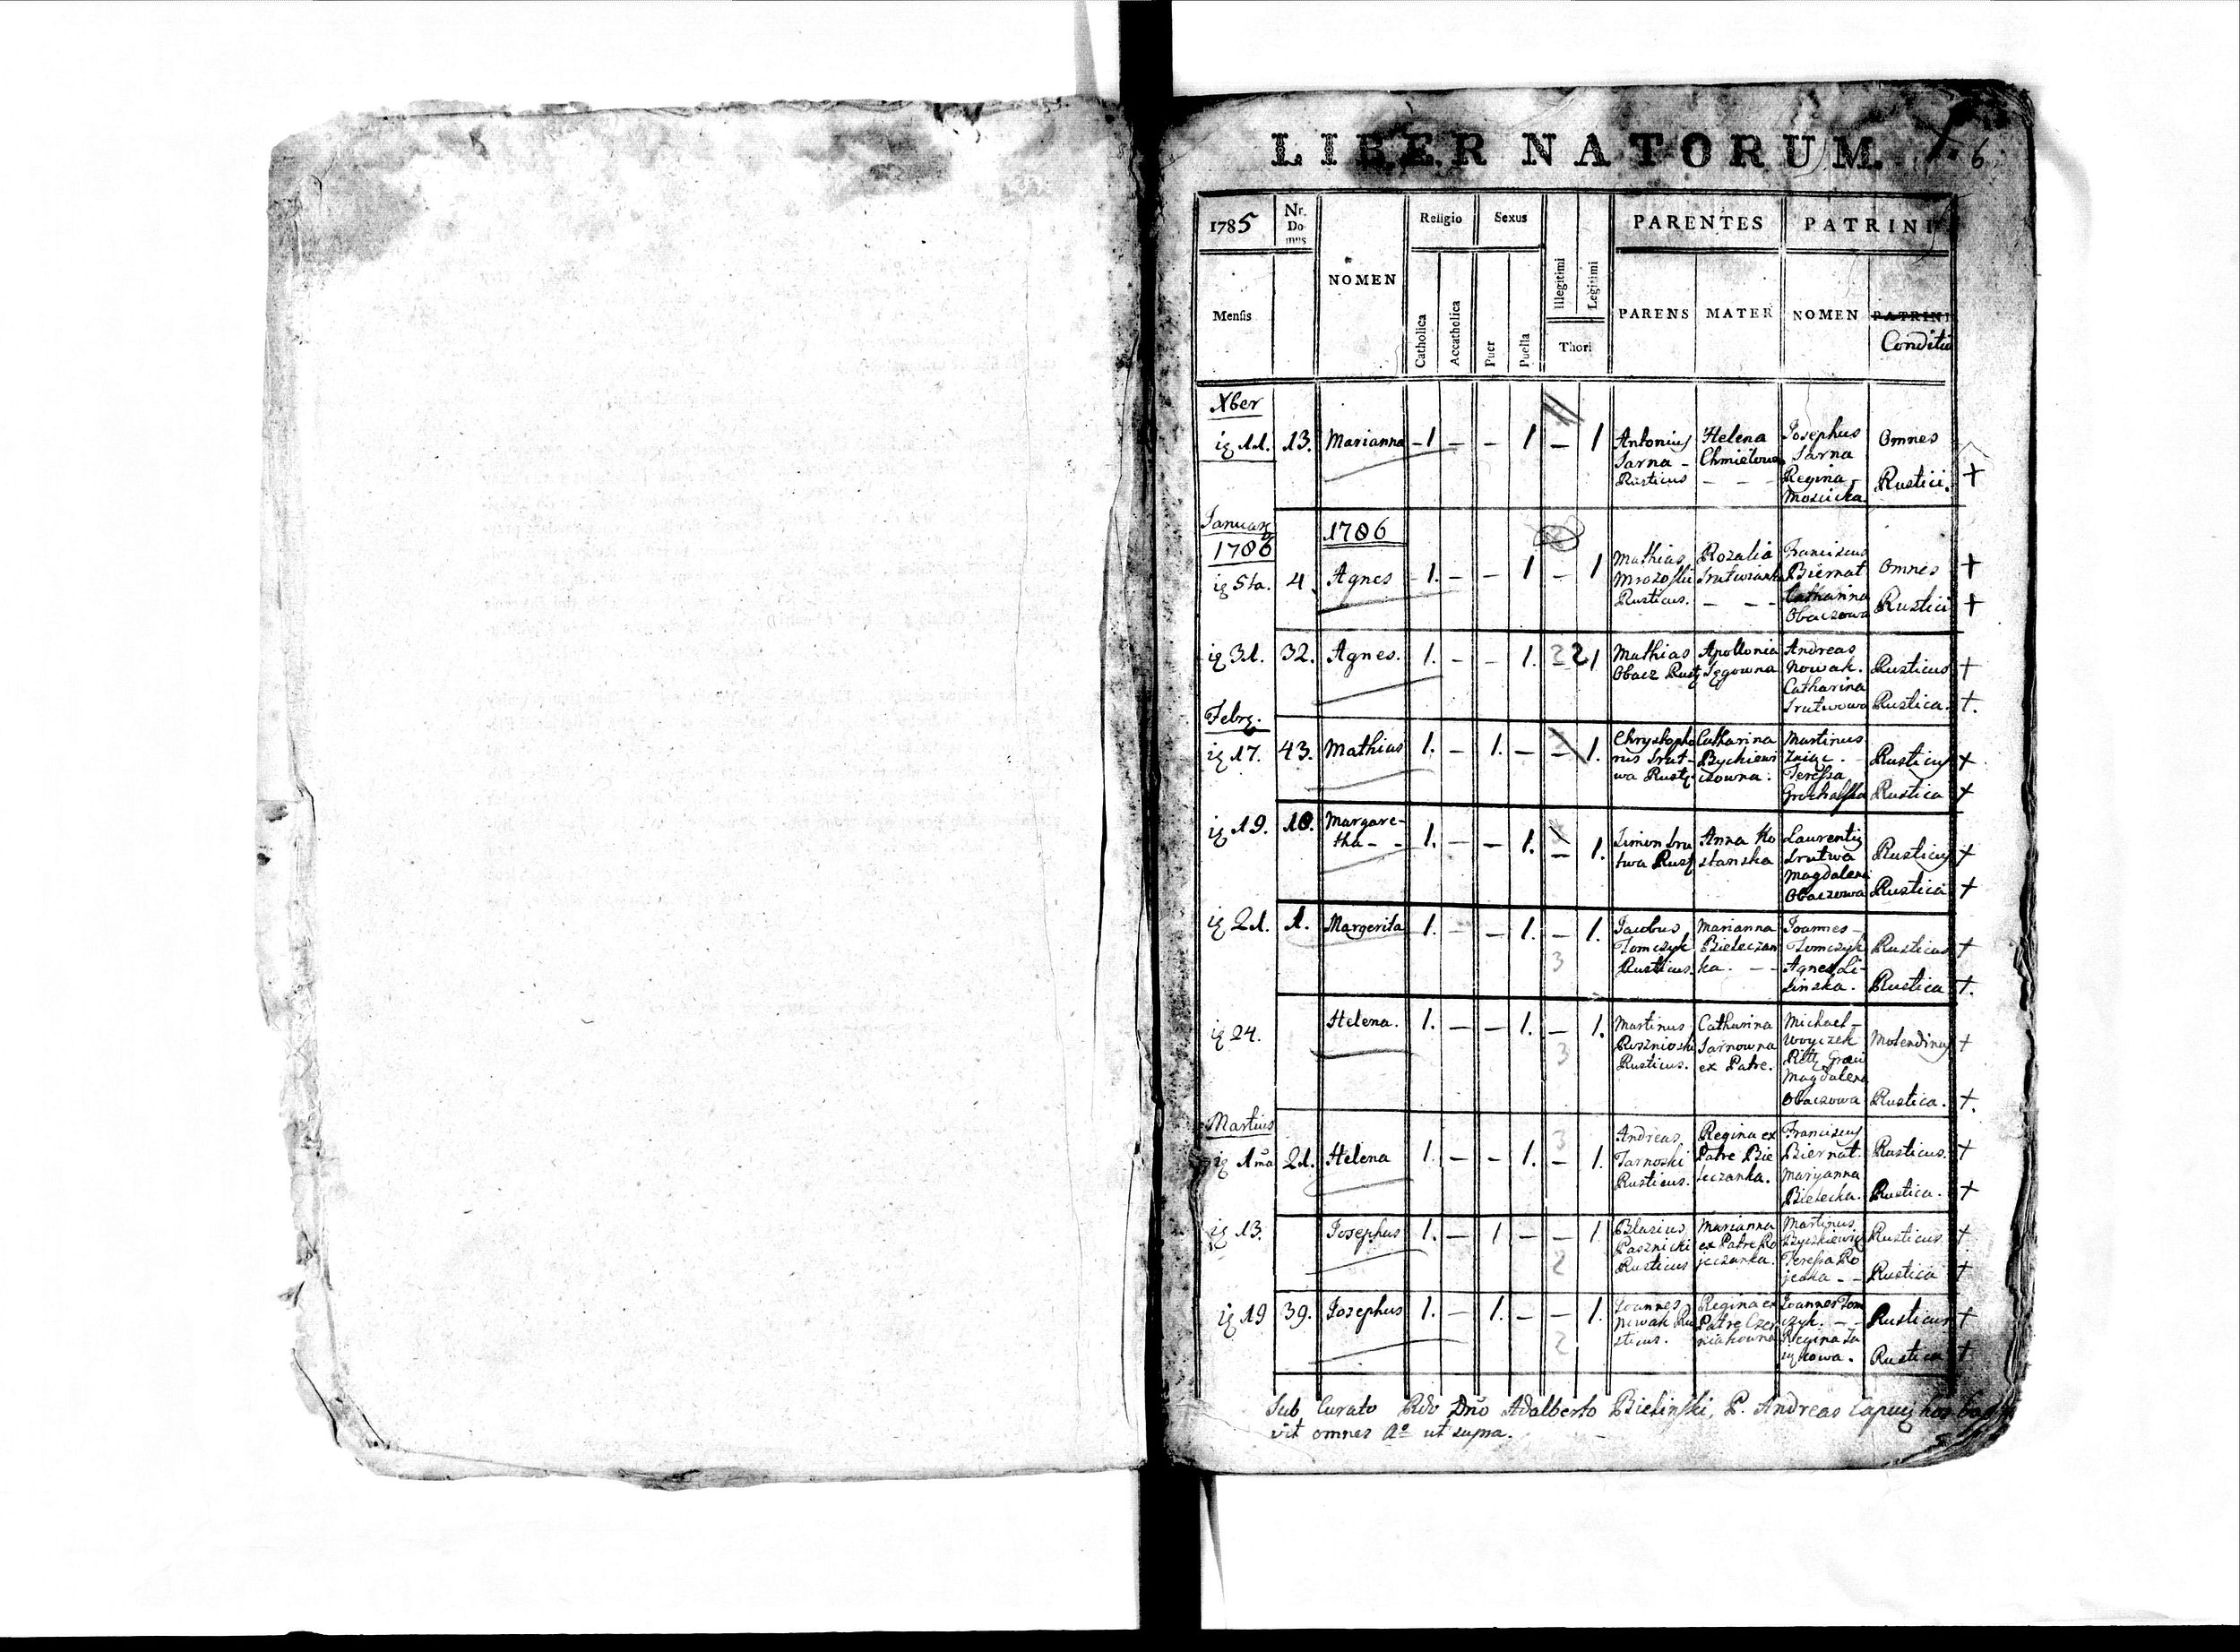 LIBER NATORUM.
6
1785
Nr. Do mus
NOMEN
Religio
Sexus
Illegitimi
Legitimi
PARENTES
PATRINI
Mensis
Catholica
Accatholica
Puer
Puella
Thori
PARENS
MATER
NOMEN
PATRINI
Conditio
Xber
ig 11. 13. Marianna – 1 – – 1 – 1
Antonius
Sarna –
Rusticus
Helena
Chmielowa
– – –
Josephus
Sarna
Regina
Moscicka
Omnes
Rustici. +
Januarg
1786
1786
ig 5ta. 4. Agnes – 1. – – 1 – 1
Mathias
Mrozoski
Rusticus.
Rozalia
Srutwianka
– – –
Franciscus
Biernat
Catharina
Obaczowa
Omnes +
Rustici +
ig 31. 32. Agnes. 1. – – 1. 2 2 1
Mathias
Obacz Rustg
Apollonia
Andreas
Nowak.
Catharina
Srutwowa
Rusticus +
Rustica. +.
Febrg.
ig 17. 43. Mathias 1. – 1. – – 1.
Chrystopho
rus Srut-
wa Rustg
Catharina
Bychiewi
czowna.
Martinus
Zaiąc. –
Teressa
Rusticus +
Rustica +
ig 19. 10. Margare-
tha – – 1. – – 1. – 1.
Simon Sru
twa Rustg
Anna Ko
stanska
Laurentig
Srutwa
Magdalena
Obaczowa
Rusticus +
Rustica +
ig 21. 1. Margerita 1. – – 1. – 1.
3
Jacobus
Tomczyk
Rusticus.
Marianna
Bieleczan
ka. – –
Joannes –
Tomczyk
Agnes Li-
sinska.
Rusticus +
Rustica +.
ig 24. Helena. 1. – – 1. – 1.
3
Martinus
Rusticus.
Catharina
Sarnowna
ex Patre.
Michael –
Woyczek
Magdalena
Obaczowa
Molendinus +
Rustica. +.
Martius
ig 1ma 21. Helena 1. – – 1. – 1.
3
Andreas
Tarnoski
Rusticus.
Regina ex
Patre Bie
leczanka.
Franciscus
Biernat.
Maryanna
Bielecka.
Rusticus. +
Rustica. +
ig 13. Josephus 1. – 1 – – 1.
2
Blasius
Pasznicki
Rusticus
Marianna
ex Patre Ro
jeczanka.
Martinus
Teressa Ro
jecka – –
Rusticus +
Rustica +
ig 19 39. Josephus 1. – 1. – – 1.
2
Joannes
Nowak Ru
sticus.
Regina ex
Patre Czer
niakowna
Joannes Tom
czyk. – –
Regina Za
iączkowa.
Rusticus +
Rustica +
Sub Curato Rdo Dno Adalberto Bielinski, P. Andreas
vit omnes Ao ut supra.